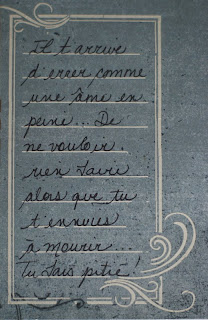 Il t'arrive
d'errer comme
une âme en
peine... De
ne vouloir
rien faire
alors que tu
t'ennuies
à mourir...
Tu fais pitié!